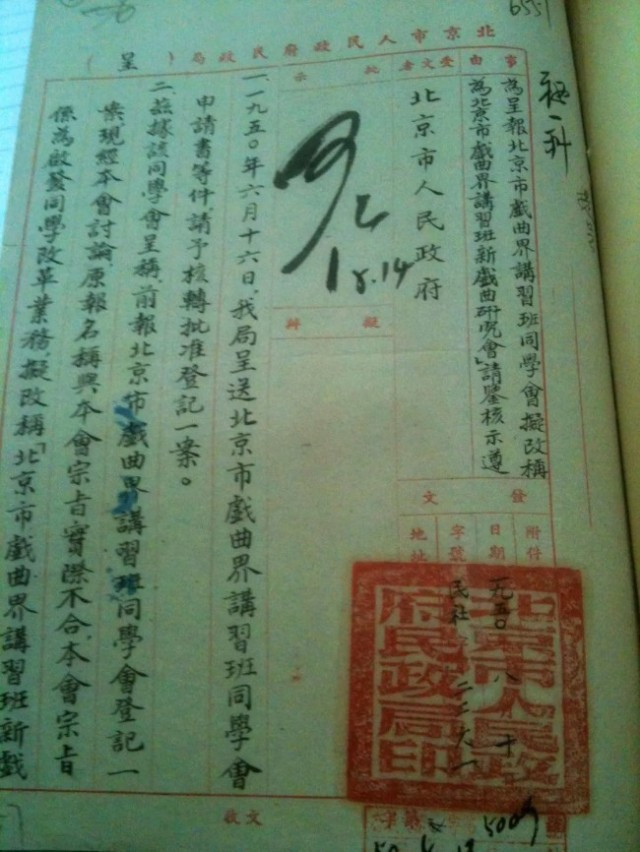 6551
北京市人民政府民政局（呈）
事由
為呈報北京市戲曲界講習班同學會擬改稱
為北京市戲曲界講習班新戲曲研究會」請鑒核示遵
受文者
北京市人民政府
發文
附件
日期
一九五〇 八月十
字號
民社 二二六一
地址
北京市人民政府民政局印
批示
8.14
擬辦
一、一九五〇年六月十六日，我局呈送北京市戲曲界講習班同學會
申請書等件請予核轉批准登記一案。
二、茲據該同學會呈稱，前報北京市戲曲界講習班同學會登記一
案現經本會討論，原報名稱與本會宗旨實際不合，本會宗旨
係為啟發同學改革業務，擬改稱「北京市戲曲界講習班新戲
收文
5009